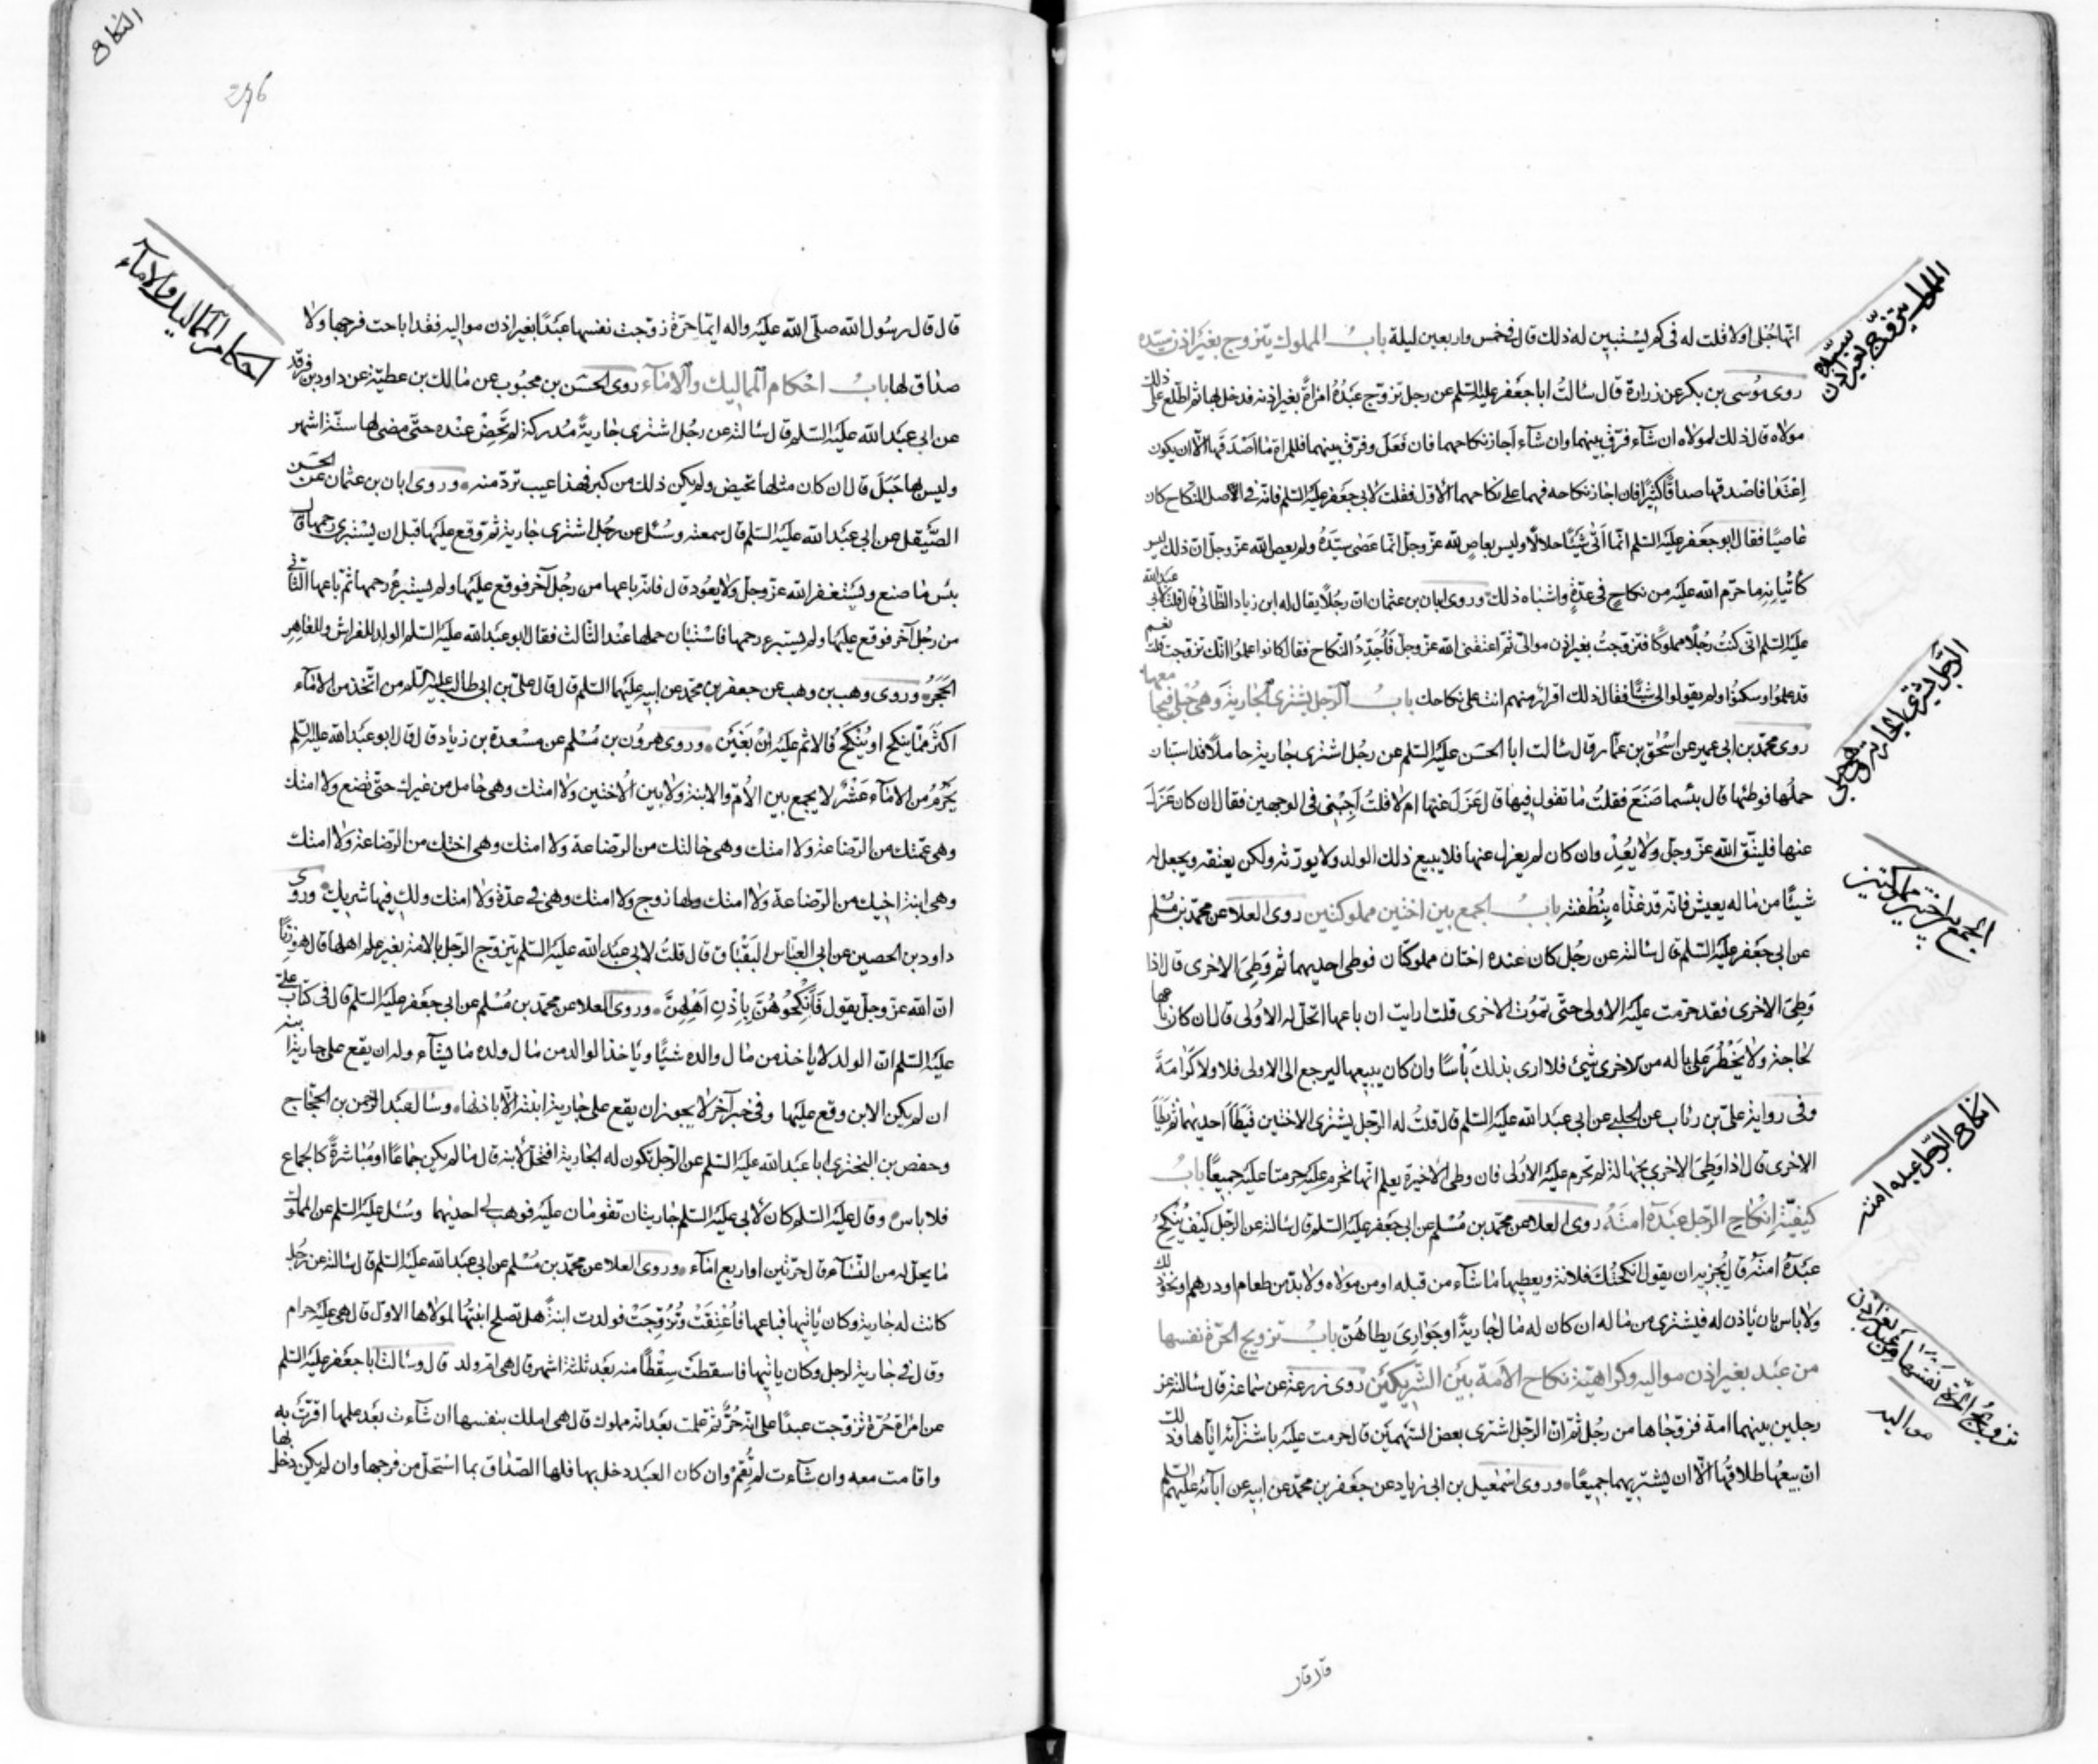 انها حبلى اولا قلت له فى كم يستبين له ذلك قال فى خمس واربعين ليلة باب المملوك يتزوج بغير اذن سيّده
روى موسى بن بكر عن زرارة قال سالت ابا جعفر عليه السلم عن رجل تزوّج عبده امراة بغير اذنه فدخل بها ثم اطّلع على ذلك
مولاه قال ذلك لمولاه ان شآء فرّق بينهما وان شآء اجاز نكاحهما فان فعل وفرّق بينهما فللمراة ما اصدقها الّا ان يكون
اعتدا فاصدقها صداقا كثيرا فان اجاز نكاحه فهما على نكاحهما الاوّل فقلت لابى جعفر عليه السلم فانه فى الاصل النكاح كان
عاصيا فقال ابو جعفر عليه السلم انما اتى شيئا حلالا وليس بعاص لله عزّ وجلّ انما عصى سيّده ولم يعص الله عزّ وجلّ ان ذلك ليس
كاتيانه ما حرّم الله عليه من نكاح فى عدّة واشباه ذلك وروى ابان بن عثمان ان رجلا يقال له ابن زياد الطائى قال قلت لابى عبد الله
عليه السلم انى كنت رجلا مملوكا فتزوجت بغير اذن موالىّ ثم اعتقنى الله عزّ وجلّ فاجدّد النكاح فقال كانوا علموا انك تزوجت قلت نعم
قد علموا وسكتوا ولم يقولوا لى شيئا فقال ذلك اقرار منهم انت على نكاحك باب الرجل يشترى الجارية وهى حبلى فيجامعها
روى محمد بن ابى عمير عن اسحق بن عمار قال سالت ابا الحسن عليه السلم عن رجل اشترى جارية حاملا قد استبان
حملها فوطئها قال بئسما صنع فقلت ما تقول فيها قال عزل عنها ام لا قلت اجبنى فى الوجهين فقال ان كان عزل
عنها فليتّق الله عزّ وجلّ ولا يعد وان كان لم يعزل عنها فلا يبيع ذلك الولد ولا يورّثه ولكن يعتقه ويجعل له
شيئا من ماله يعيش فانه قد غذاه بنطفته باب الجمع بين اختين مملوكتين روى العلا عن محمد بن مسلم
عن ابى جعفر عليه السلم قال سالته عن رجل كان عنده اختان مملوكتان فوطى احديهما ثم وطى الاخرى قال اذا
وطى الاخرى فقد حرمت عليه الاولى حتى تموت الاخرى قلت ارايت ان باعها اتحل له الاولى قال ان كان باعها
لحاجة ولا يخطر على باله من الاخرى شىء فلا ارى بذلك باسا وان كان يبيعها ليرجع الى الاولى فلا ولا كرامة
وفى رواية على بن رئاب عن الحلبى عن ابى عبد الله عليه السلم قال قلت له الرجل يشترى الاختين فيطا احديهما ثم يطا
الاخرى قال اذا وطى الاخرى بجهالة لم تحرم عليه الاولى فان وطى الاخيرة يعلم انها تحرم عليه حرمتا عليه جميعا باب
كيفية انكاح الرجل عبده امته روى العلا عن محمد بن مسلم عن ابى جعفر عليه السلم قال سالته عن الرجل كيف ينكح
عبده امته قال يجزيه ان يقول انكحتك فلانة ويعطيها ما شآء من قبله او من مولاه ولا بدّ من طعام او درهم او نحو ذلك
ولا باس بان ياذن له فيشترى من ماله ان كان له مال جارية او جوارى يطاهن باب تزويج الحرة نفسها
من عبد بغير اذن مواليه وكراهية نكاح الامة بين الشريكين روى زرعة عن سماعة قال سالته عن
رجلين بينهما امة فزوجاها من رجل ثم ان الرجل اشترى بعض السهمين قال حرمت عليه باشترآئه اياها وذلك
ان بيعها طلاقها الّا ان يشتريهما جميعا وروى اسمعيل بن ابى زياد عن جعفر بن محمد عن ابيه عن آبائه عليهم السلم
الرجل يشترى الجارية وهى حبلى
الجمع بين اختين مملوكتين
انكاح الرجل عبده امته
تزويج الحرة نفسها من عبد بغير اذن مواليه
النكاح
276
احكام المماليك والامآء
قال قال رسول الله صلّى الله عليه واله ايما حرّة زوجت نفسها عبدا بغير اذن مواليه فقد اباحت فرجها ولا
صداق لها باب احكام المماليك والامآء روى الحسن بن محبوب عن مالك بن عطية عن داود بن فرقد
عن ابى عبد الله عليه السلم قال سالته عن رجل اشترى جارية مدركة لم تحض عنده حتى مضى لها ستة اشهر
وليس بها حبل قال ان كان مثلها تحيض ولم يكن ذلك من كبر فهذا عيب تردّ منه وروى ابان بن عثمان عن الحسن
الصيقل عن ابى عبد الله عليه السلم قال سمعته وسئل عن رجل اشترى جارية ثم وقع عليها قبل ان يستبرى رحمها قال
بئس ما صنع ويستغفر الله عزّ وجلّ ولا يعود قال فانه باعها من رجل آخر فوقع عليها ولم يستبرء رحمها ثم باعها الثانى
من رجل آخر فوقع عليها ولم يستبرء رحمها فاستبان حملها عند الثالث فقال ابو عبد الله عليه السلم الولد للفراش وللعاهر
الحجر وروى وهب بن وهب عن جعفر بن محمد عن ابيه عليهما السلم قال قال على بن ابى طالب عليه السلم من اتخذ من الامآء
اكثر مما ينكح او ينكح فالاثم عليه ان بغين وروى هرون بن مسلم عن مسعدة بن زياد قال قال ابو عبد الله عليه السلم
يحرم من الامآء عشر لا يجمع بين الام والابنة ولا بين الاختين ولا امتك وهى حامل من غيرك حتى تضع ولا امتك
وهى عمتك من الرضاعة ولا امتك وهى خالتك من الرضاعة ولا امتك وهى اختك من الرضاعة ولا امتك
وهى ابنة اخيك من الرضاعة ولا امتك ولها زوج ولا امتك وهى فى عدة ولا امتك ولك فيها شريك وروى
داود بن الحصين عن ابى العباس البقباق قال قلت لابى عبد الله عليه السلم يتزوج الرجل بالامة بغير علم اهلها قال هو زنا
ان الله عزّ وجلّ يقول فانكحوهن باذن اهلهن وروى العلا عن محمد بن مسلم عن ابى جعفر عليه السلم قال فى كتاب على
عليه السلم ان الولد لا ياخذ من مال والده شيئا وياخذ الوالد من مال ولده ما يشآء وله ان يقع على جارية ابنه
ان لم يكن الابن وقع عليها وفى خبر آخر لا يجوز ان يقع على جارية ابنته الّا باذنها وسال عبد الرحمن بن الحجاج
وحفص بن البخترى ابا عبد الله عليه السلم عن الرجل تكون له الجارية افتحل لابنه قال ما لم يكن جماعا او مباشرة كالجماع
فلا باس وقال عليه السلم كان لابى عليه السلم جاريتان تقومان عليه فوهب لى احديهما وسئل عليه السلم عن المملوك
ما يحل له من النسآء قال حرتين او اربع امآء وروى العلا عن محمد بن مسلم عن ابى عبد الله عليه السلم قال سالته عن رجل
كانت له جارية وكان ياتيها فباعها فاعتقت وتزوجت فولدت ابنة هل تصلح ابنتها لمولاها الاول قال هى عليه حرام
وقال فى جارية لرجل وكان ياتيها فاسقطت سقطا منه بعد ثلثة اشهر قال هى ام ولد قال وسالت ابا جعفر عليه السلم
عن امراة حرة تزوجت عبدا على انه حر ثم علمت بعد انه مملوك قال هى املك بنفسها ان شآءت بعد علمها اقرت به
واقامت معه وان شآءت لم تقم وان كان العبد دخل بها فلها الصداق بما استحل من فرجها وان لم يكن دخل بها